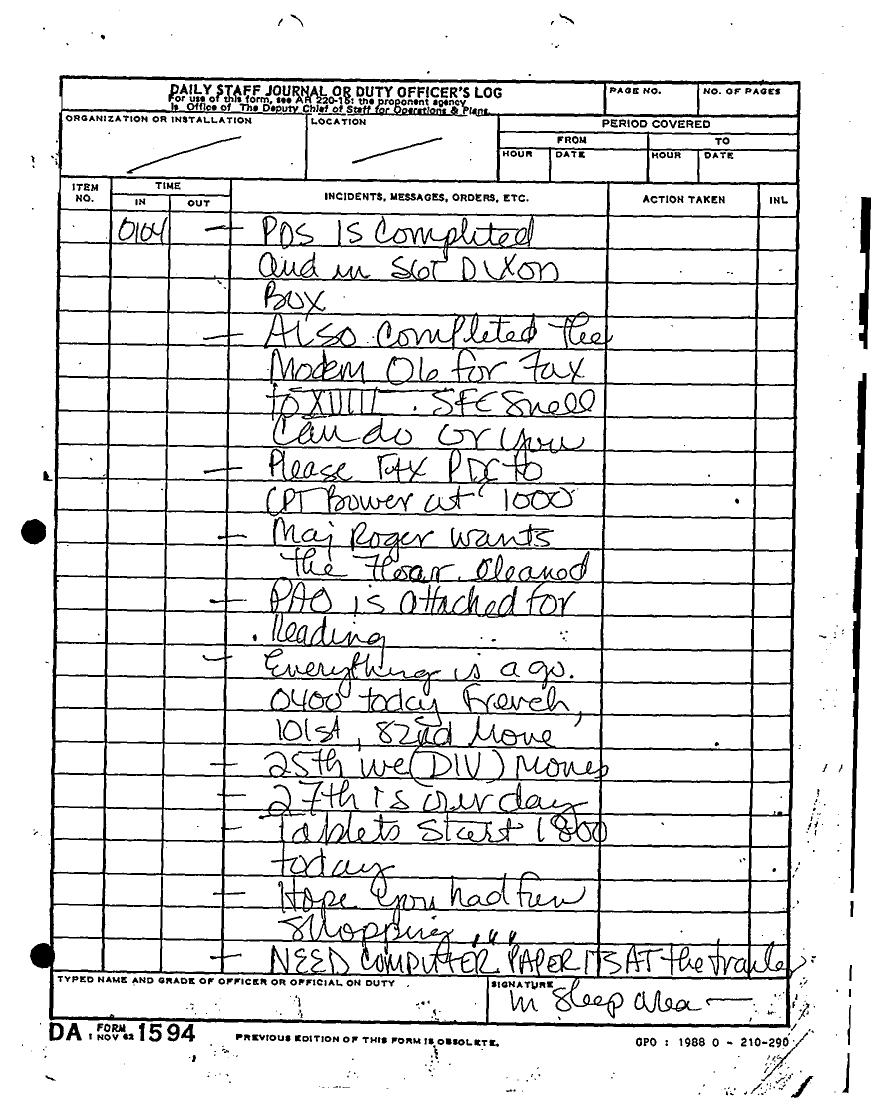 DAILY STAFF JOURNAL OR DUTY OFFICER'S LOG
For use of this form, see AR 220-15; the proponent agency
is Office of The Deputy Chief of Staff for Operations & Plans.
PAGE NO.
NO. OF PAGES
ORGANIZATION OR INSTALLATION
LOCATION
PERIOD COVERED
FROM
TO
HOUR
DATE
HOUR
DATE
ITEM NO.
TIME
IN
OUT
INCIDENTS, MESSAGES, ORDERS, ETC.
ACTION TAKEN
INL
0104 — PDS IS Completed
and in SGT DIXON
BOX
— Also completed the
Modem 06 for Fax
to XVIII. SFC Snell
Can do or you
— Please FAX PDC to
CPT Bower at 1000
— Maj Roger wants
the floor cleaned
— PAO is attached for
Reading
— Everything is a go.
0400 today French,
101st, 82nd Move
— 25th we (DIV) Moves
— 27th is our day
— Tablets Start 1800
today
— Hope you had fun
Shopping
— NEED COMPUTER PAPER ITS AT the trailer
TYPED NAME AND GRADE OF OFFICER OR OFFICIAL ON DUTY
SIGNATURE
in Sleep area —
DA FORM 1 NOV 62 1594
PREVIOUS EDITION OF THIS FORM IS OBSOLETE.
GPO : 1988 O - 210-290